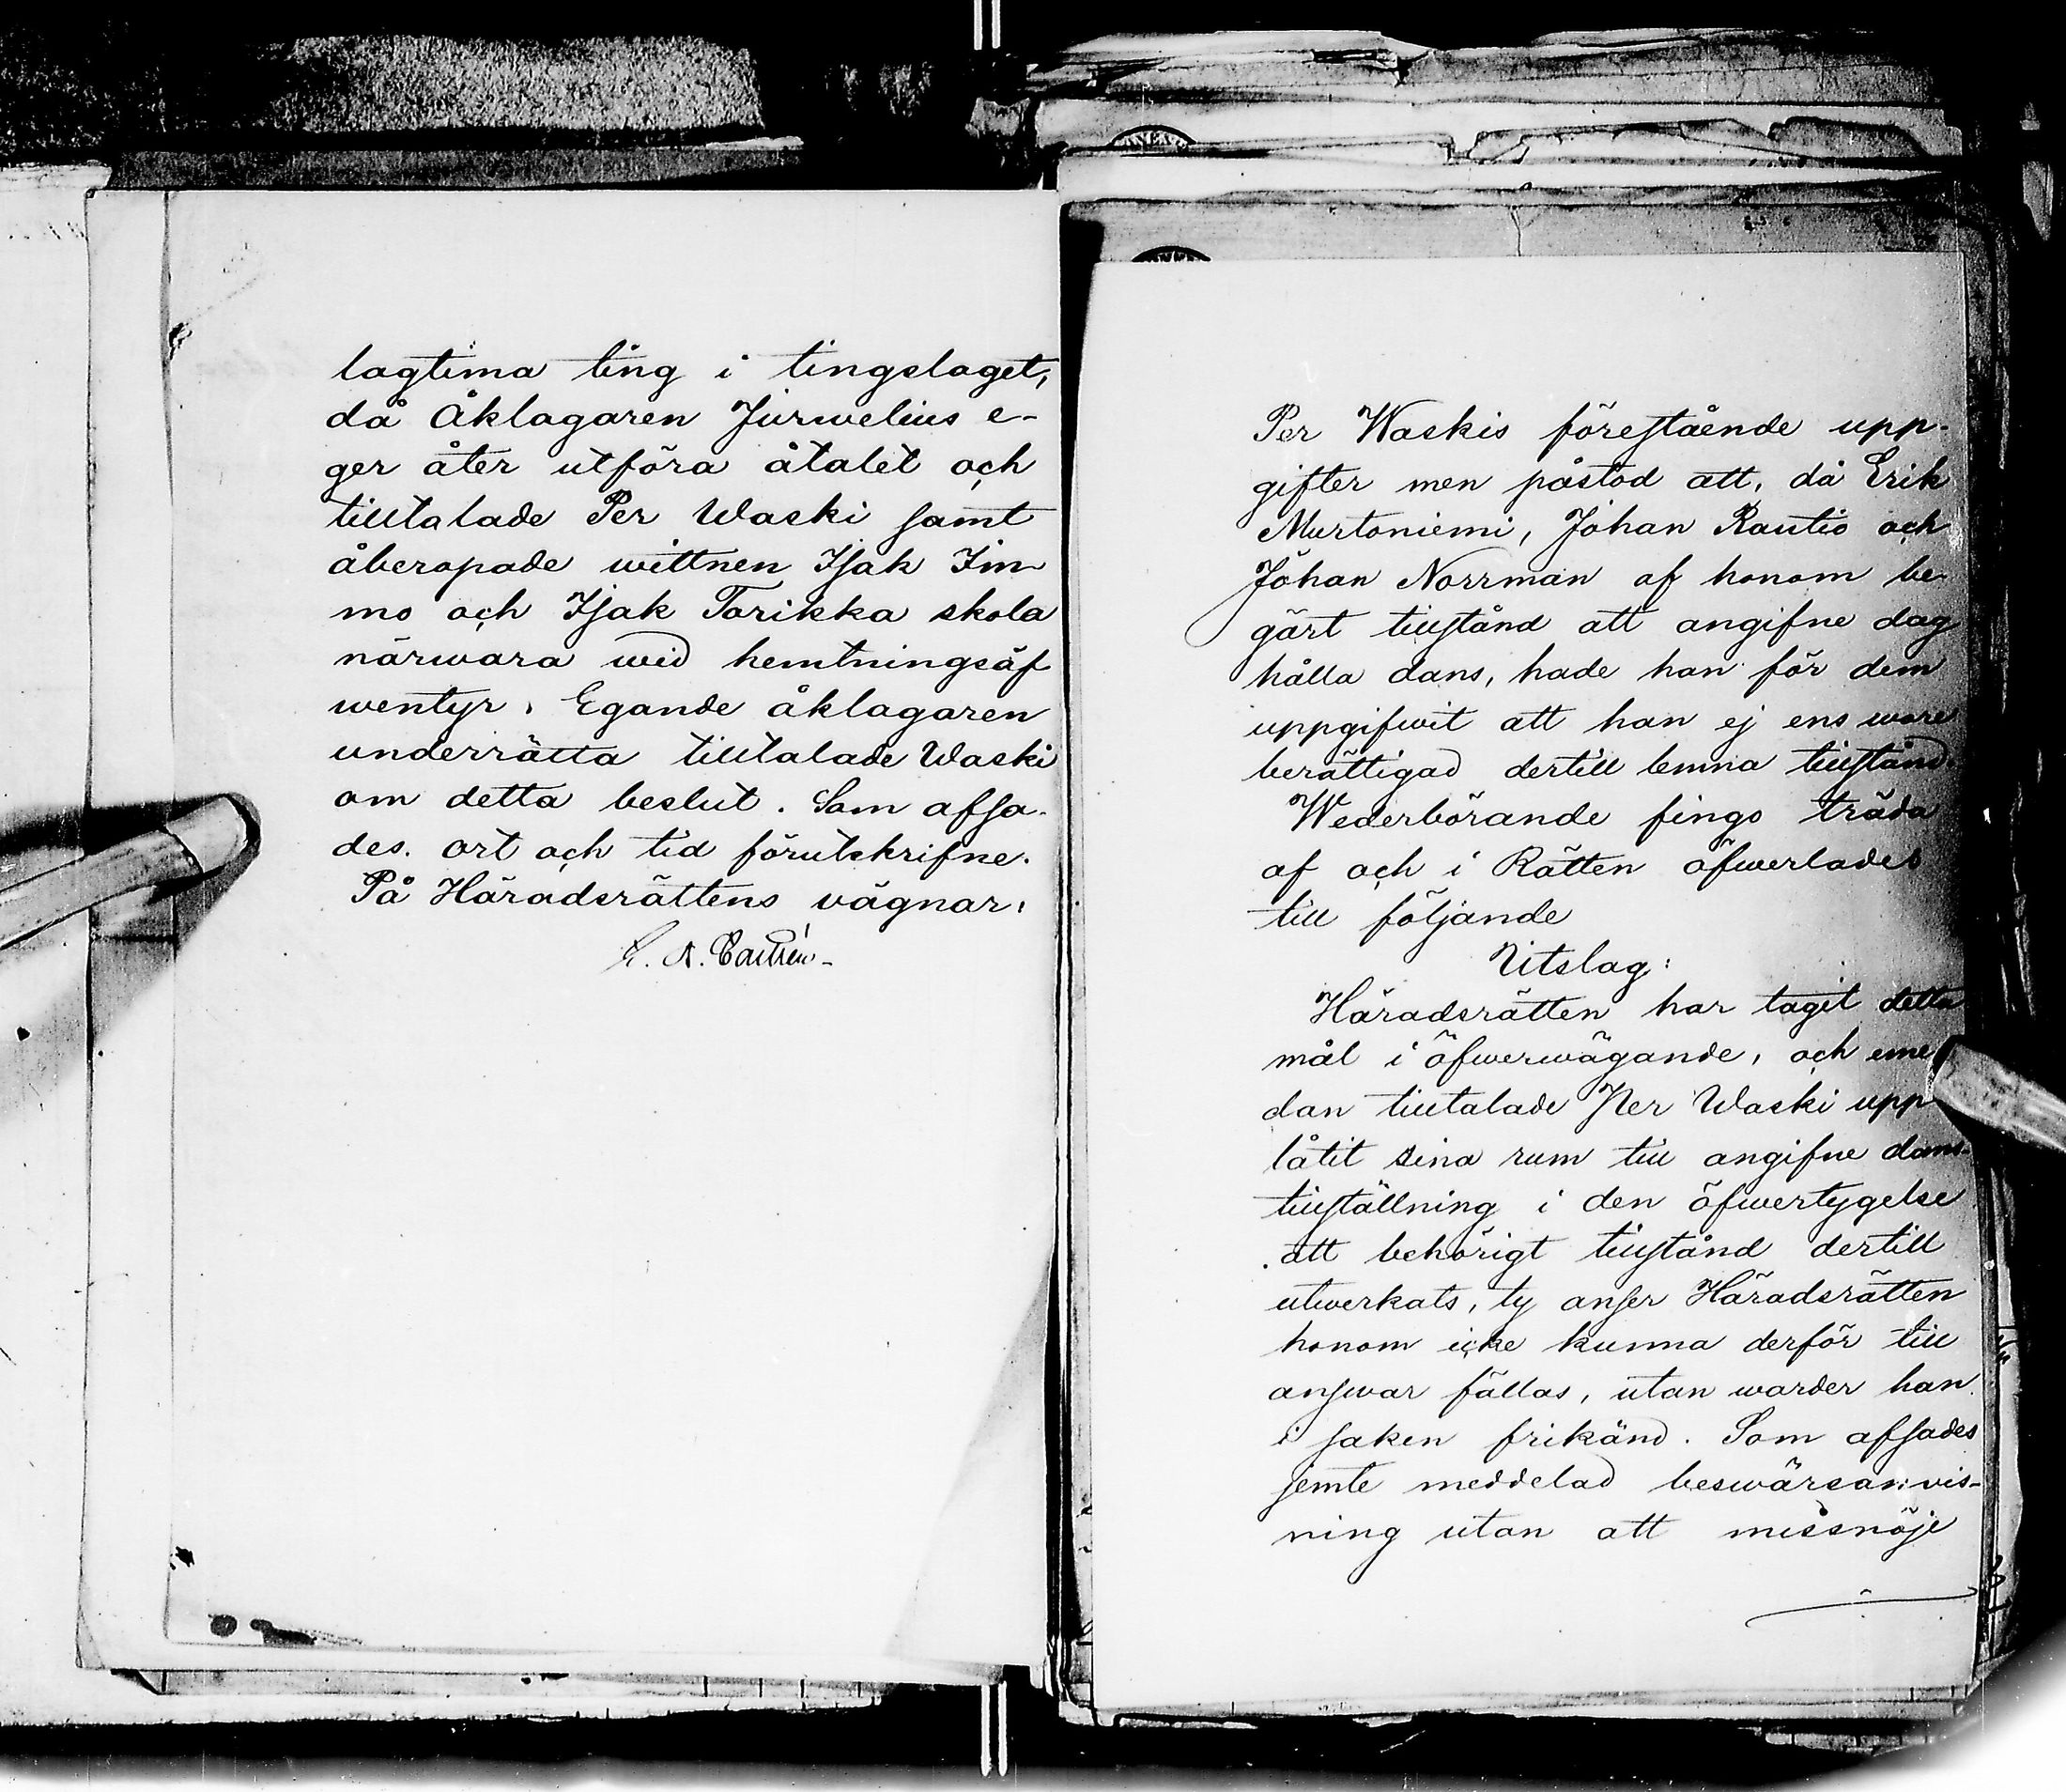 lagtima ting i tingslaget,
då Åklagaren Jurvelius e-
ger åter utföra åtalet och
tilltalade Per Waski samt
åberopade wittnen Isak Im
mo och Isak Torikka skola
närwara wid hemtningsäf
wentyr. Egande åklagaren
underrätta tilltalade Waski
om detta beslut. Som afsa-
des. ort och tid förutskrifne.
På Häradsrättens vägnar:
Per Waskis förestående upp-
gifter men påstod att, då Erik
Murtoniemi, Johan Rautio och
Johan Norrman af honom be-
gärt tillstånd att angifne dag
hålla dans, hade han för dem
uppgifwit att han ej ens wore
berättigad dertill lemna tillstånd.
Wederbörande fingo träda
af och i Rätten öfwerlades
till följande
Utslag:
Häradsrätten har tagit detta
mål i öfwerwägande, och eme
dan tilltalade Per Waski upp
låtit sina rum till angifne dans-
tillställning i den öfwertygelse
att behörigt tillstånd dertill
utwerkats, ty anser Häradsrätten
honom icke kunna derför till
answar fällas, utan warder han
i saken frikänd. Som afsades
jemte meddelad beswärsanvis-
ning utan att missnöje